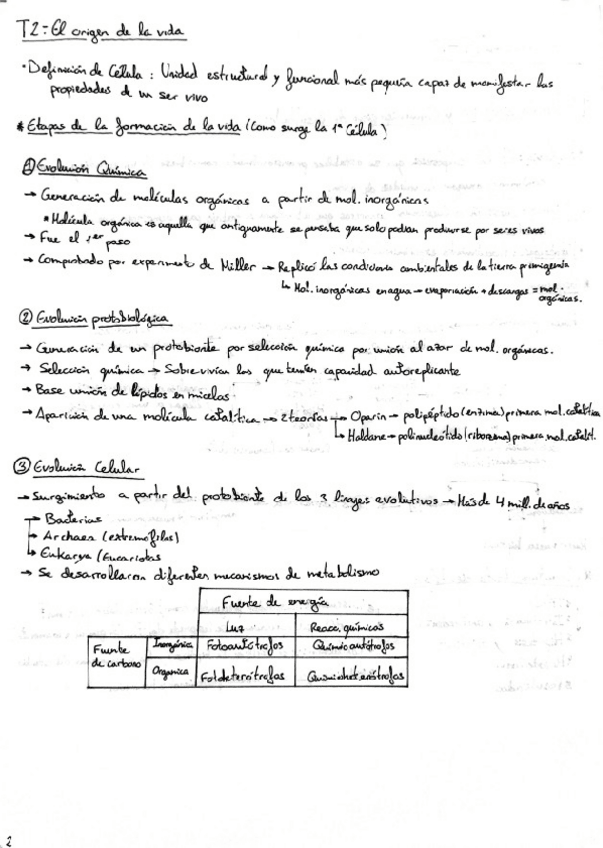 T2: El origen de la vida
· Definición de Célula: Unidad estructural y funcional más pequeña capaz de manifestar las
propiedades de un ser vivo
* Etapas de la formación de la vida (Como surge la 1ª Célula)
① Evolución Química
→ Generación de moléculas orgánicas a partir de mol. inorgánicas
* Molécula orgánica es aquella que antiguamente se pensaba que solo podían producirse por seres vivos
→ Fue el 1er paso
→ Comprobado por experimento de Miller → Replicó las condiciones ambientales de la tierra primigenia
↳ Mol. inorgánicas en agua → evaporización + descargas = mol. orgánicas.
② Evolución protobiológica
→ Generación de un protobionte por selección química por unión al azar de mol. orgánicas.
→ Selección química → Sobrevivían los que tenían capacidad autoreplicante
→ Base unión de lípidos en micelas
→ Aparición de una molécula catalítica → 2 teorías → Oparin → polipéptido (enzima) primera mol. catalítica
↳ Haldane → polinucleótido (ribozima) primera mol. catalít.
③ Evolución Celular
→ Surgimiento a partir del protobionte de los 3 linajes evolutivos → Hás de 4 mill. de años
→ Bacterias
→ Archaea (extremófilas)
↳ Eukarya (Eucariotas
→ Se desarrollaron diferentes mecanismos de metabolismo
Fuente de energía
Luz Reacc. químicas
Fuente de carbono Inorgánica Fotoautótrofos Quimioautótrofos
Organica Fotoheterótrofos Quimioheterótrofos
2